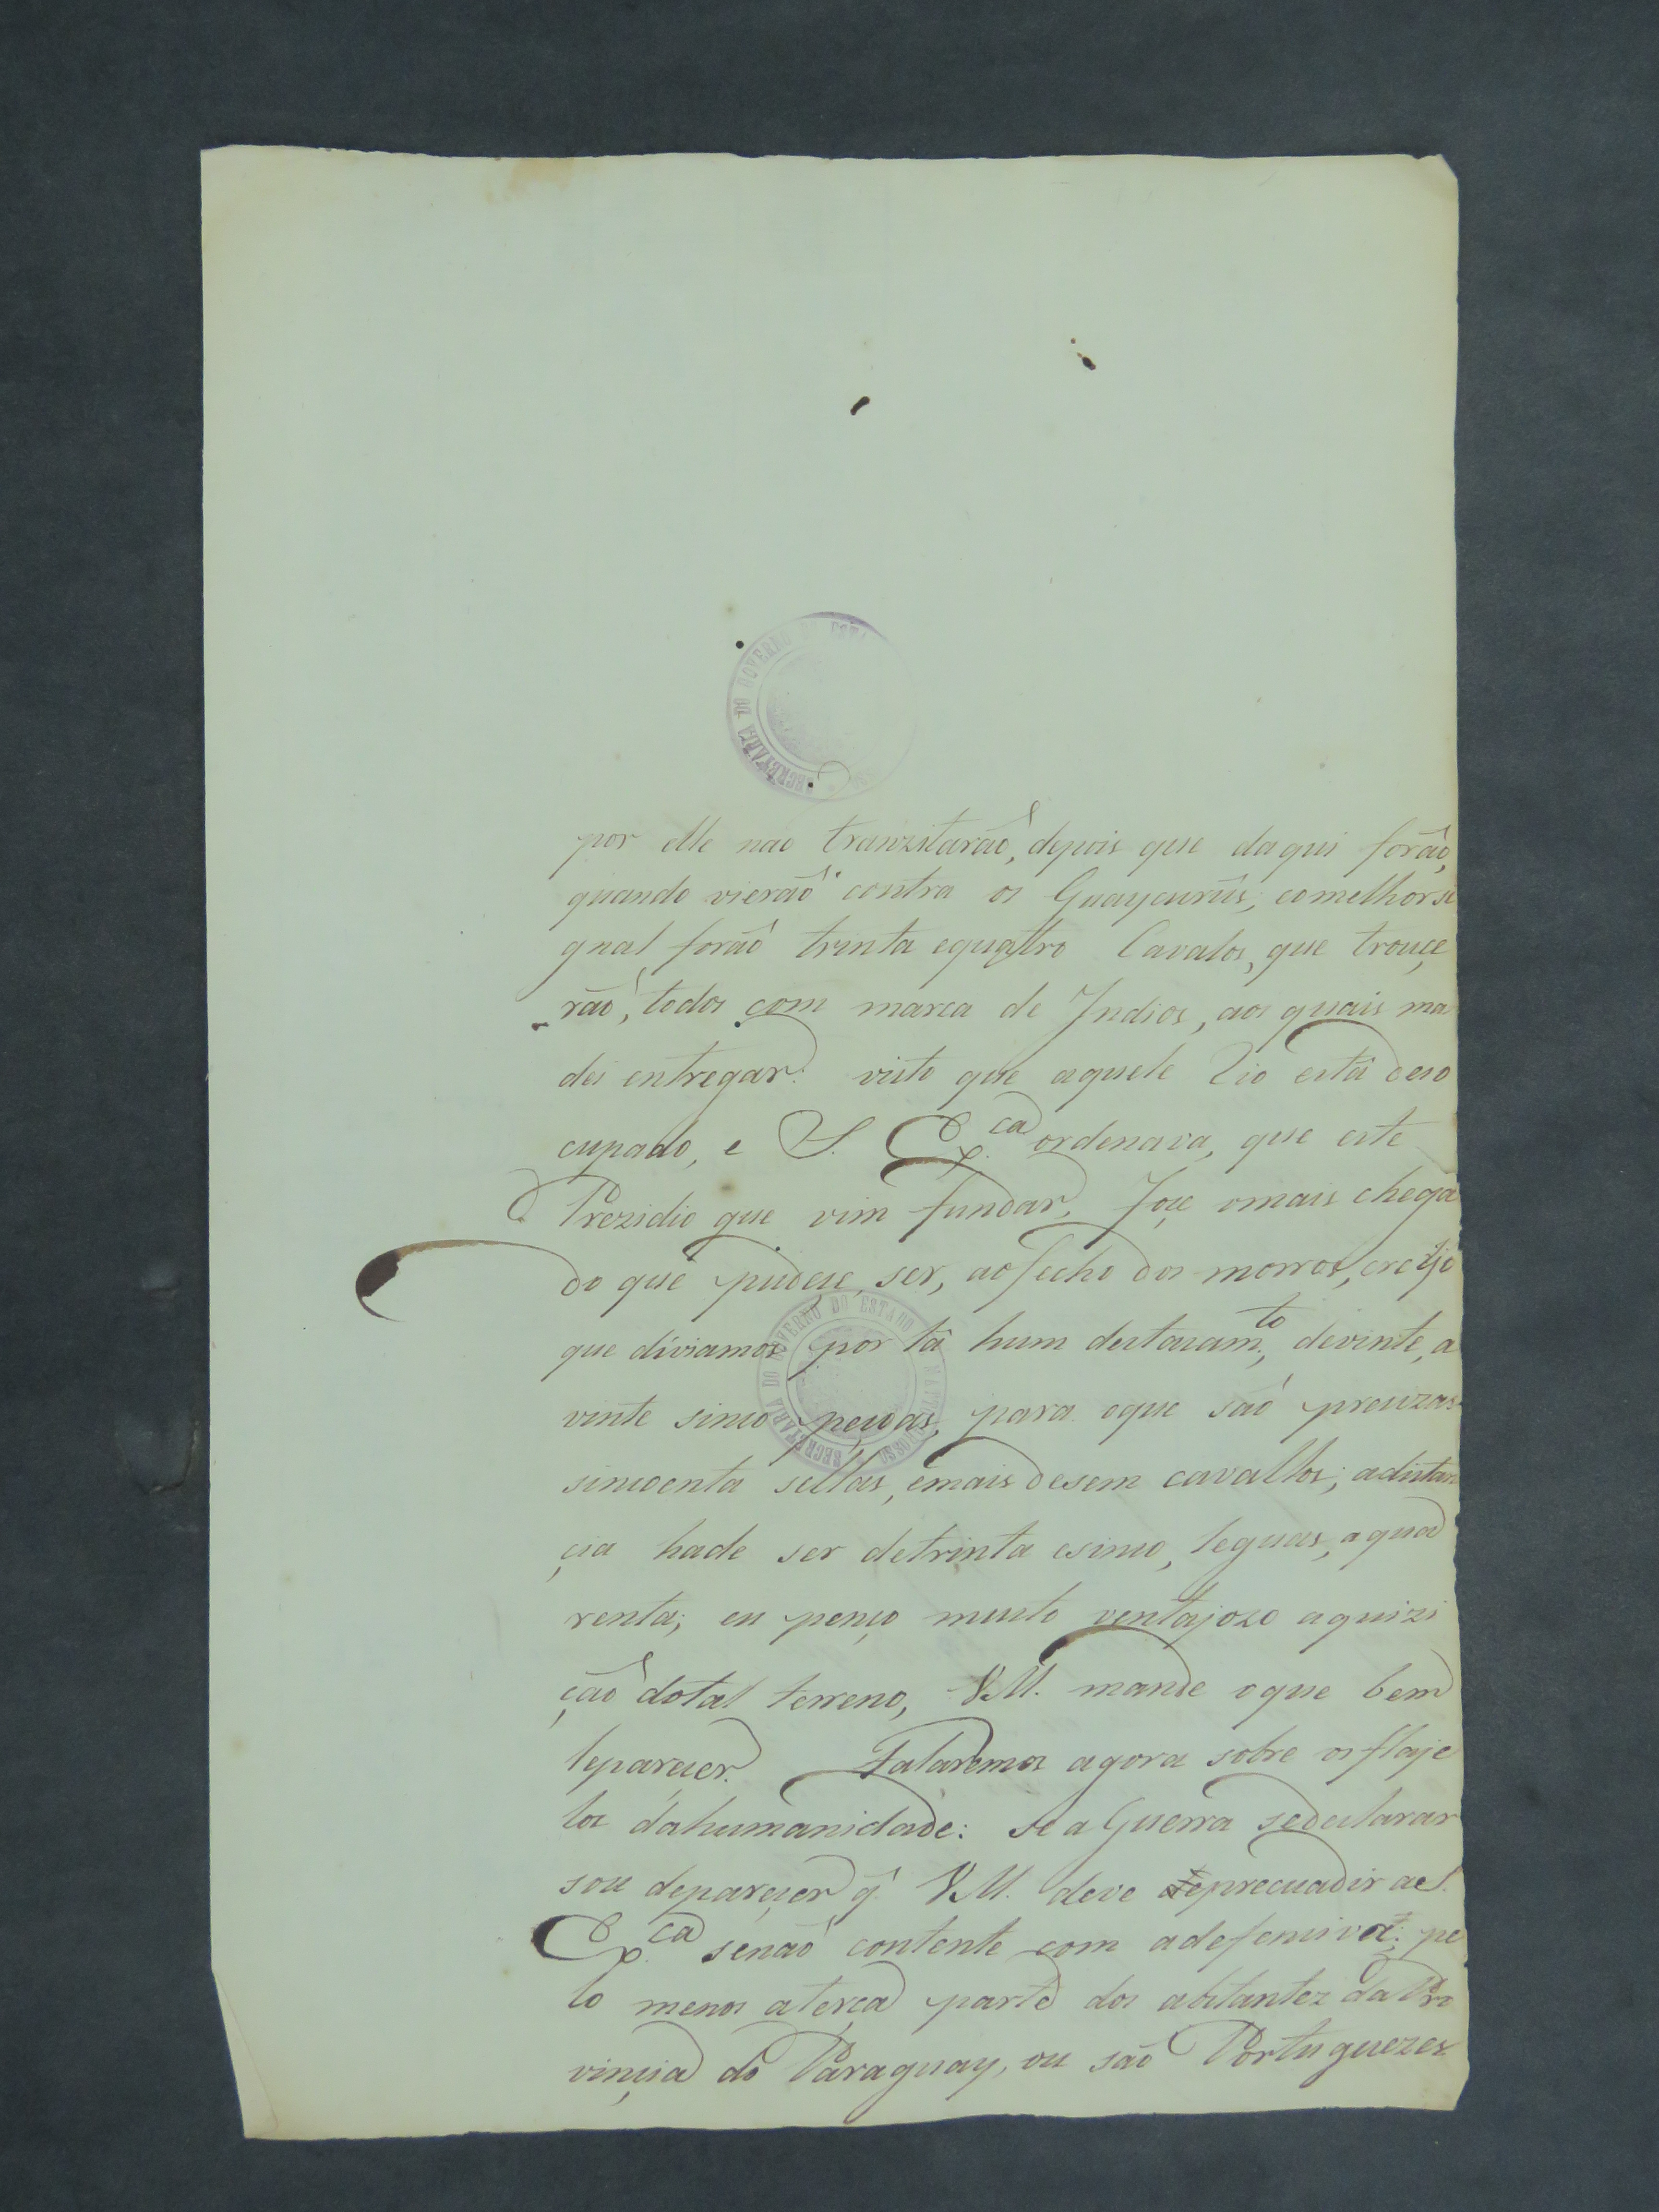 SECRETARIA DO GOVERNO DO ESTA
por elle naõ tranzitaraõ, depois que daqui foraõ,
quando vieraõ contra os Guaycurûs; eomelhor si
gnal foraõ trinta equatro Cavalos, que trouçe
raõ, todos com marca de Indios, aos quais ma
dei entregar: visto que aquele Rio està dezo
cupado, e S. Ex.ca ordenava, que este
Prezidio que vim fundar, foçe omais chega
do que pudeçe ser, aofecho dos morros, creijo
que diviamos por lâ hum destacam.to, devinte, a
vinte sinco peçoas, para oque saõ precizas
sincoenta sellas, emais desem cavallos; adistan
çia hade ser detrinta esinco, leguas, aqua
renta; eu penço muito ventajozo aquizi
çaõ dotal terreno, VM. mande oque bem
leparecer. Falaremos agora sobre osflaje
los dahumanidade: se a Guerra sedeclarar
sou depareçer q̃ VM. deve precuadir aeS.
Ex.ca senaõ contente com adefenciva: pe
lo menos aterça parte dos abitantez daPro
vinçia do Paraguay, ou saõ Portuguezes
SECRETARIA DO GOVERNO DO ESTADO MATTO GROSSO